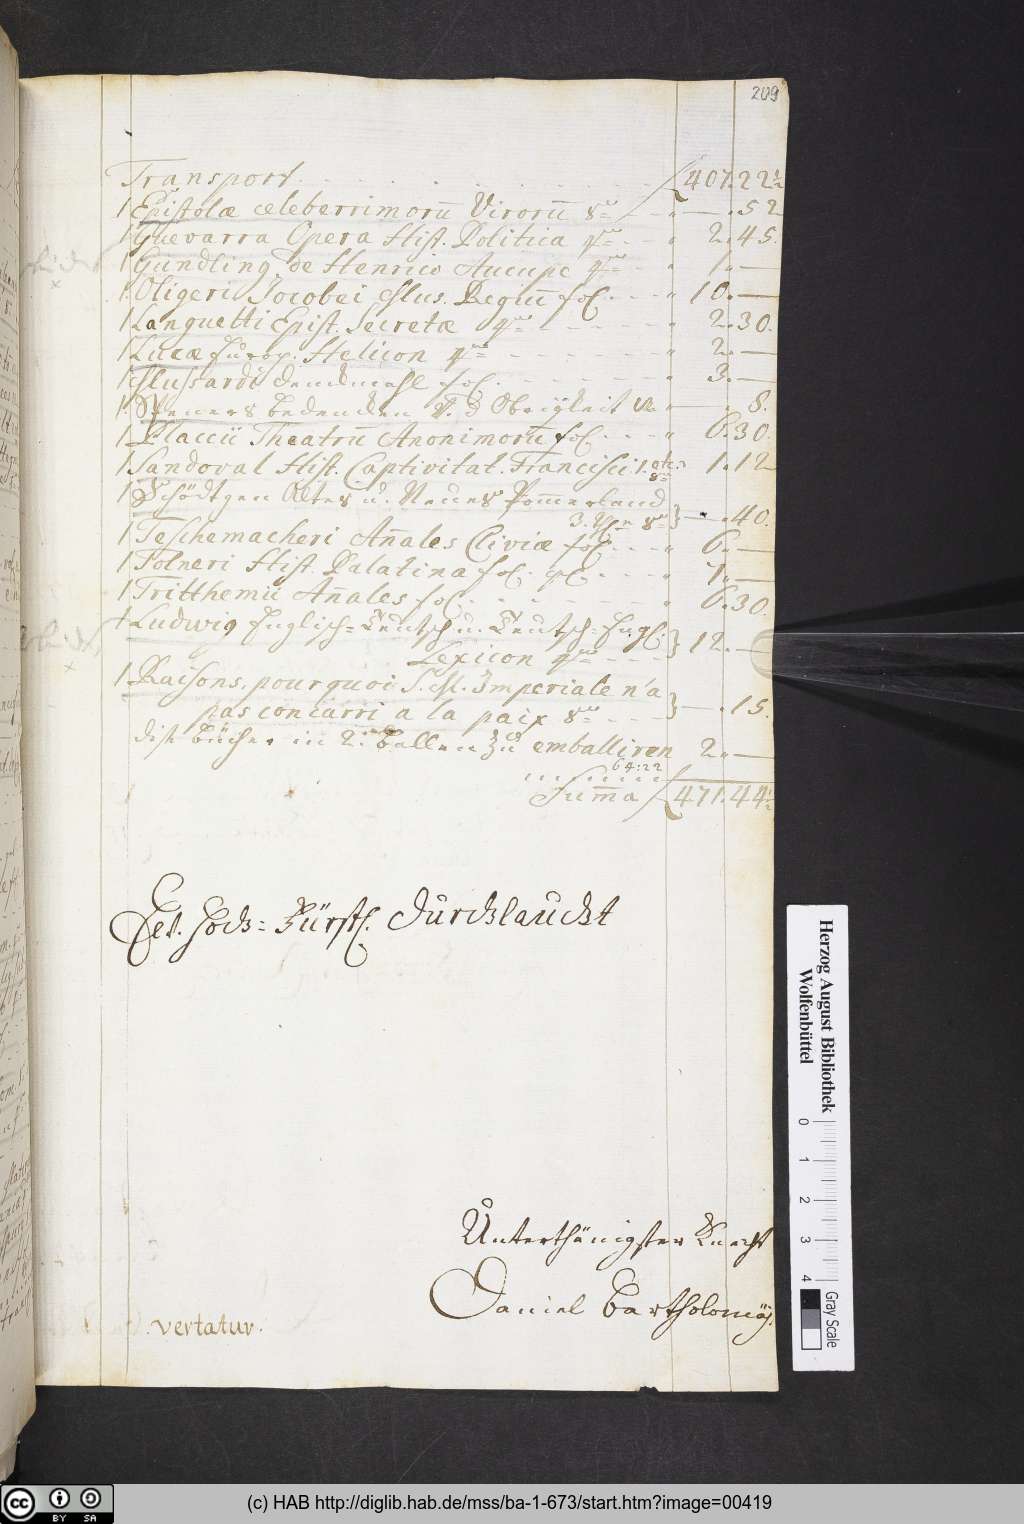 209
Transport . . . . . . . . . . . f 407.22½
1 Epistolæ celeberrimorū Virorū 8vo — „ — . 52
1 Guevarra Opera Hist. Politica 4to . — „ 2. 45.
1 Gundling. de Henrico Aucupe 4to . . „ 1. —
1 Oligeri Jacobei Mus. Regiū fol. . . „ 10. —
1 Languetti Epist. Secretæ 4to . . . „ 2. 30.
1 Lucæ Europ. Helicon 4to . . . . „ 2. —
1 Mussardi denckmahl fol. . . . . „ 3. —
1 Speners bedencken v. d Obrigkeit „ — . 8.
1 Placcii Theatrū Anonimorū fol. . . „ 6. 30.
1 Sandoval Hist. Captivitat. Francisci 1. 8vo 1. 12
1 Schödtgen Altes u. Neues Pom̄erland
3. 8vo } — . 40.
1 Teschemacheri An̄ales Cliviæ fol. . . „ 6. —
1 Tolneri Hist. Palatina fol. . . „ 7. —
1 Tritthemii An̄ales fol. . . . . „ 6. 30.
1 Ludwig Englisch=Teutsch u. Teutsch=Engl.
Lexicon 4to . . . } 12. —
1 Raisons. pourquoi S. M. Imperiale n'a
pas concarri a la paix 8vo . . . } — . 15.
diese bücher in 2. ballen zu emballiren 2. —
64:22
Sum̄a f 471.44½
Hoch=Fürstl. Durchlaucht
Unterthänigster Knecht
Daniel Bartholomäj.
vertatur.
Herzog August Bibliothek
Wolfenbüttel
0 1 2 3 4
Gray Scale
(c) HAB http://diglib.hab.de/mss/ba-1-673/start.htm?image=00419
cc BY SA